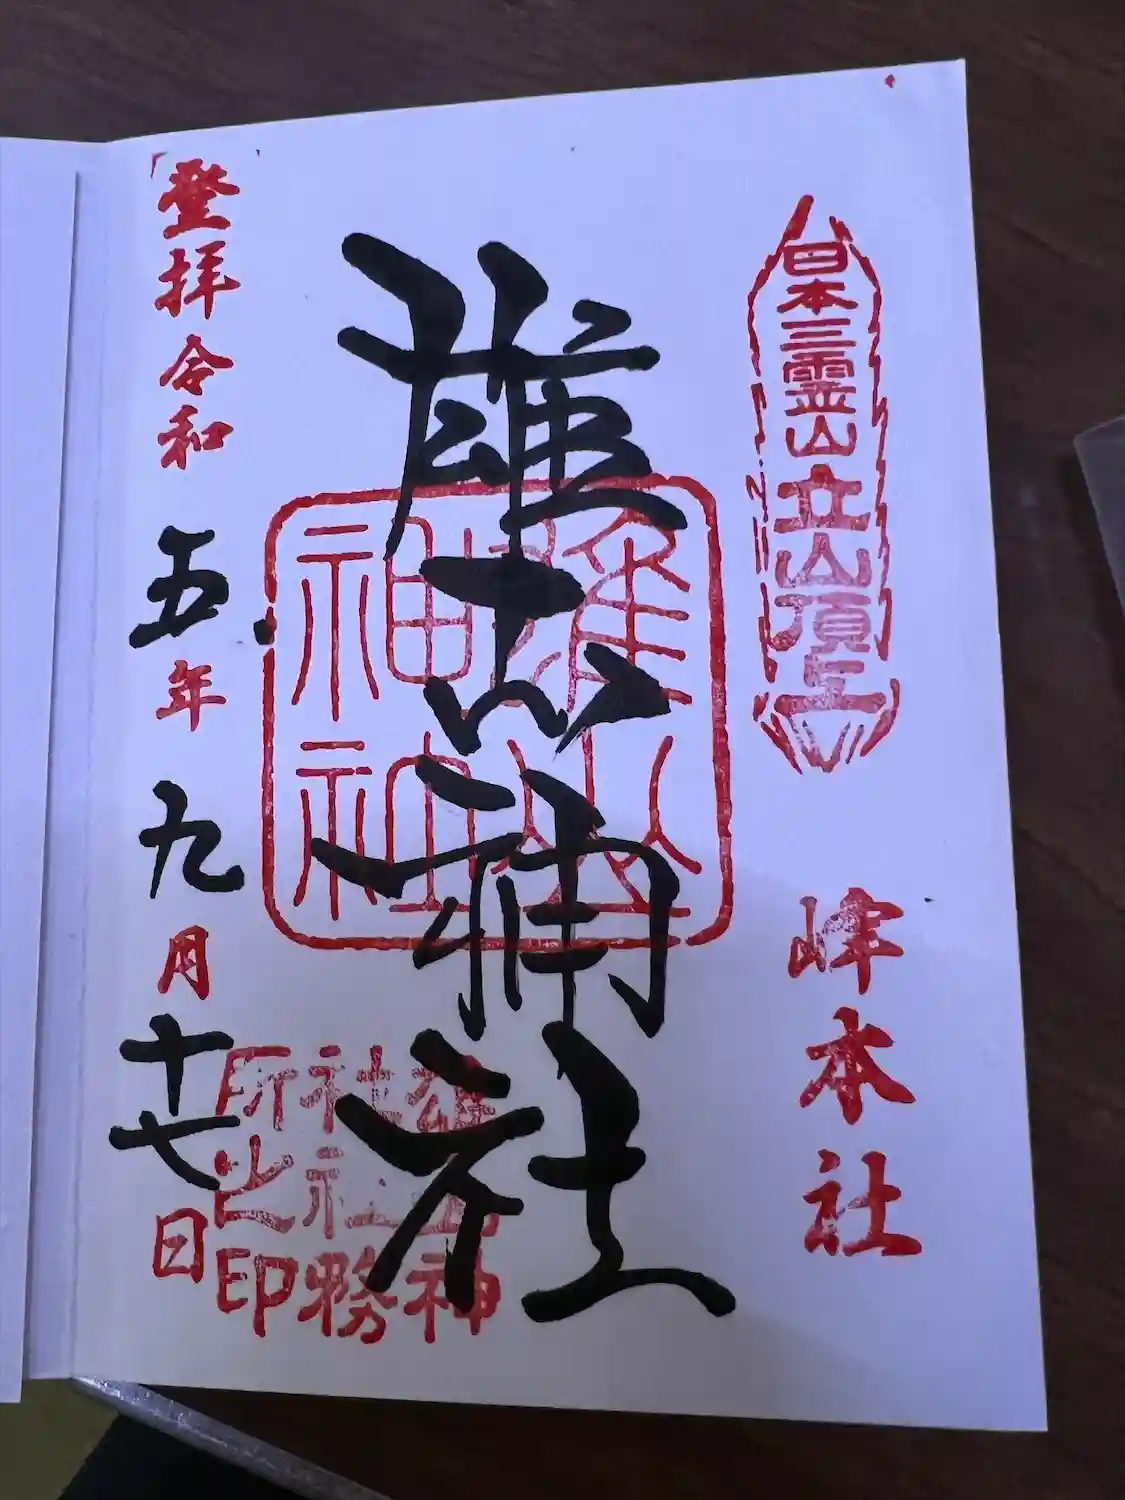 日本三霊山立山頂上
峰本社
雄山神社
雄山神社
雄山神社社務所之印
登拝令和五年九月十七日